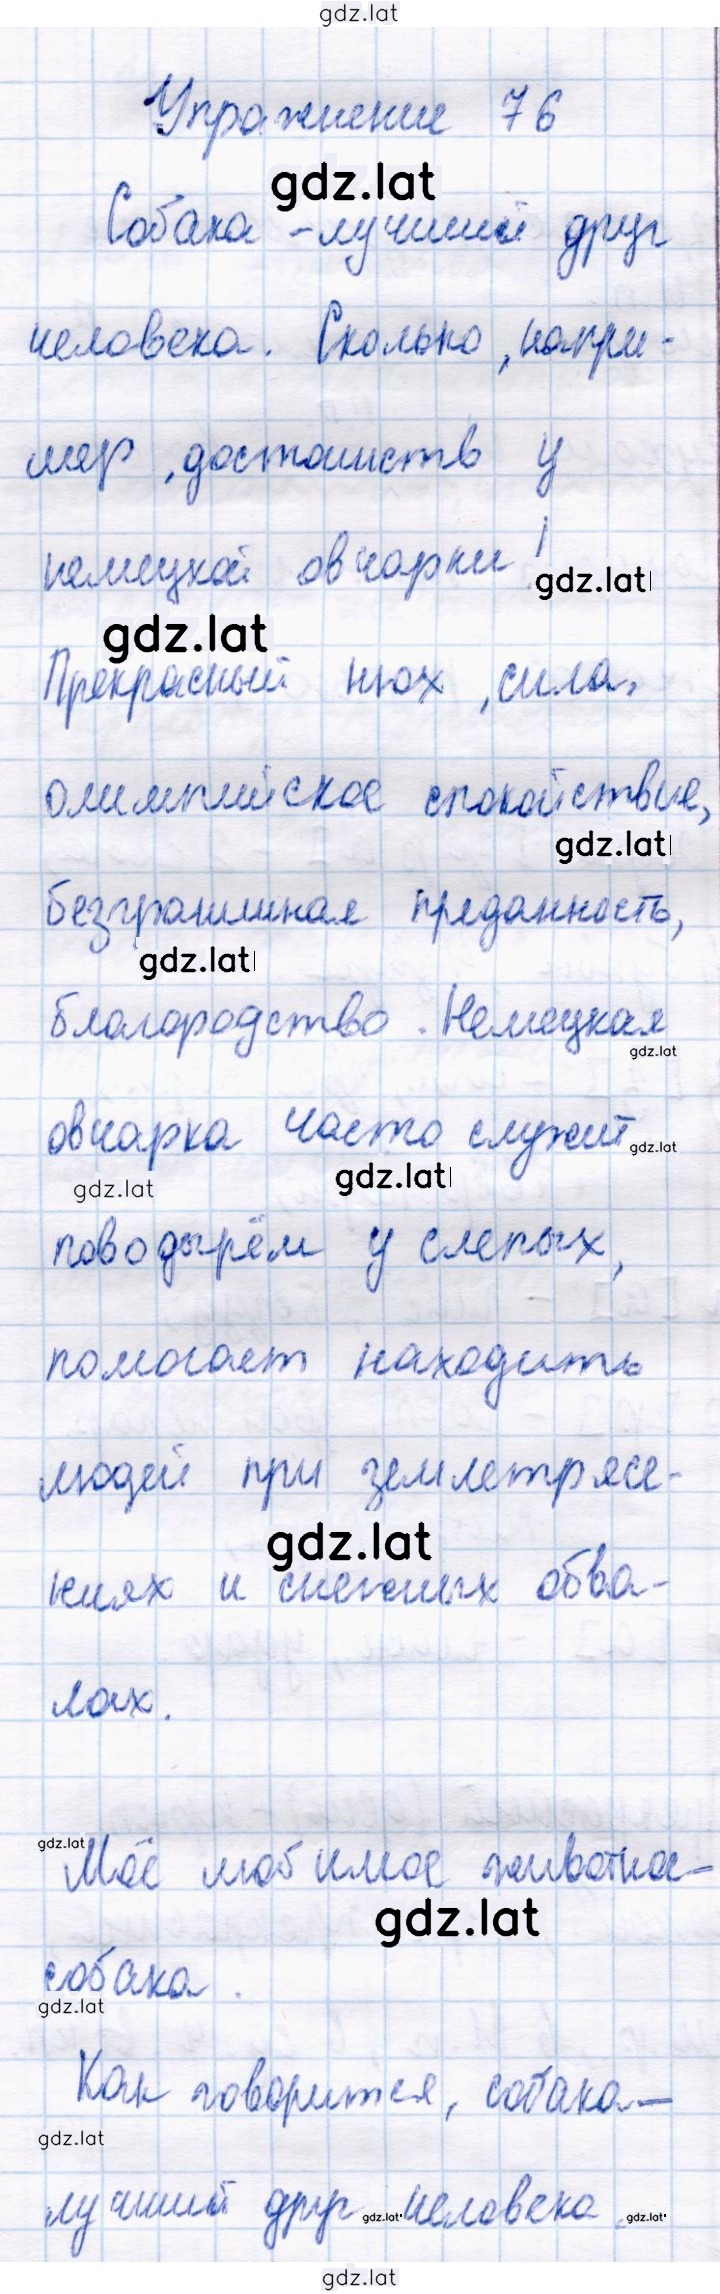 gdz.lat
Упражнение 76
gdz.lat
Собака - лучший друг
человека. Сколько, напри-
мер, достоинств у
немецкой овчарки!
gdz.lat
gdz.lat
Прекрасный нюх, сила,
олимпийское спокойствие,
gdz.lat
безграничная преданность,
gdz.lat
благородство. Немецкая
gdz.lat
овчарка часто служит
gdz.lat
gdz.lat
gdz.lat
поводырём у слепых,
помогает находить
людей при землетрясе-
gdz.lat
ниях и снежных обва-
лах.
gdz.lat
Моё любимое животное-
gdz.lat
собака.
gdz.lat
Как говорится, собака-
gdz.lat
лучший друг человека.
gdz.lat
gdz.lat
gdz.lat